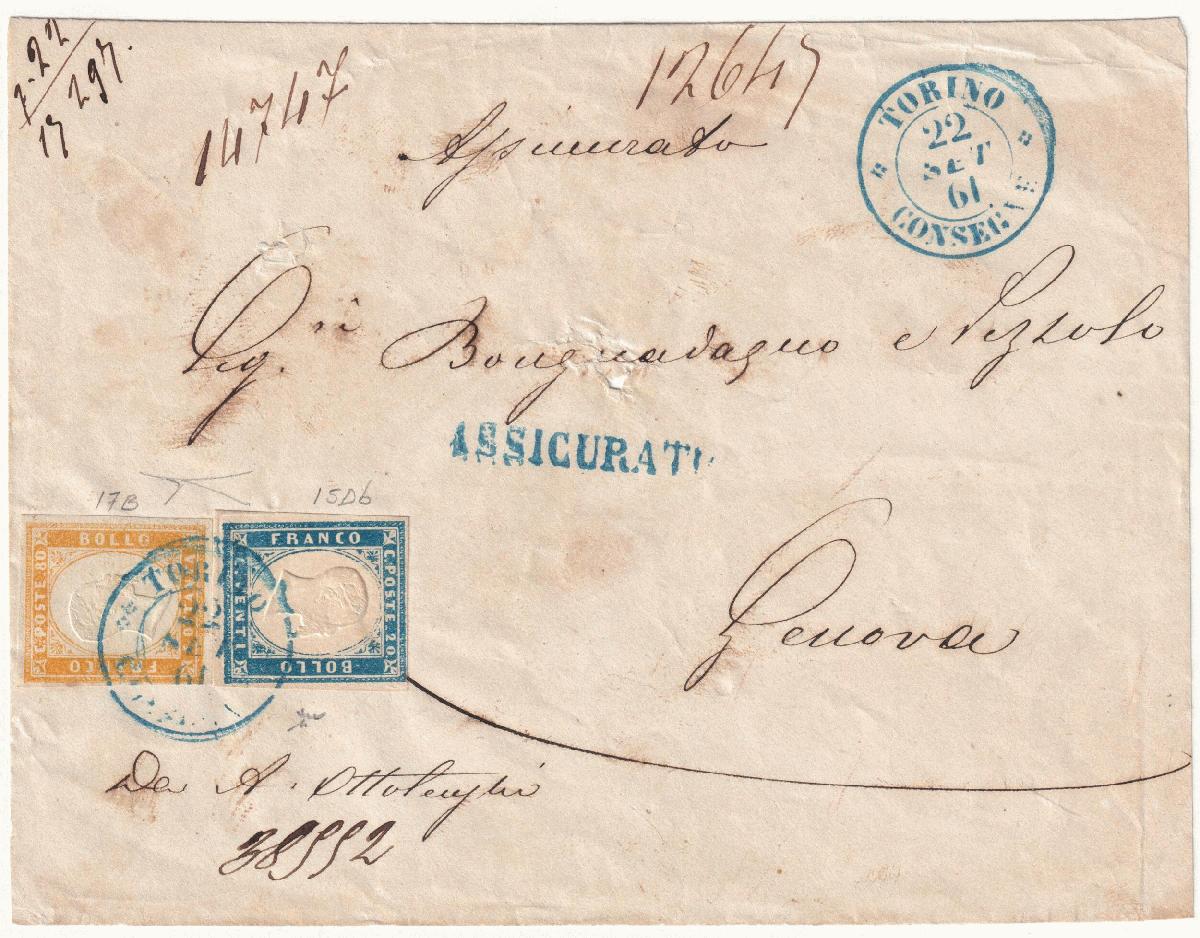 7-22
17 297.
14747
12647
Assicurato
TORINO
22
SET
61
CONSEGNE
Sig.ri Bonguadagno e Pezzolo
ASSICURATO
17B
15Db
BOLLO
C. POSTE. 80
FRANCO
FRANCO
C. POSTE 20
BOLLO
CENTI
TORINO
61
Genova
Da A. Ottolenghi
38992